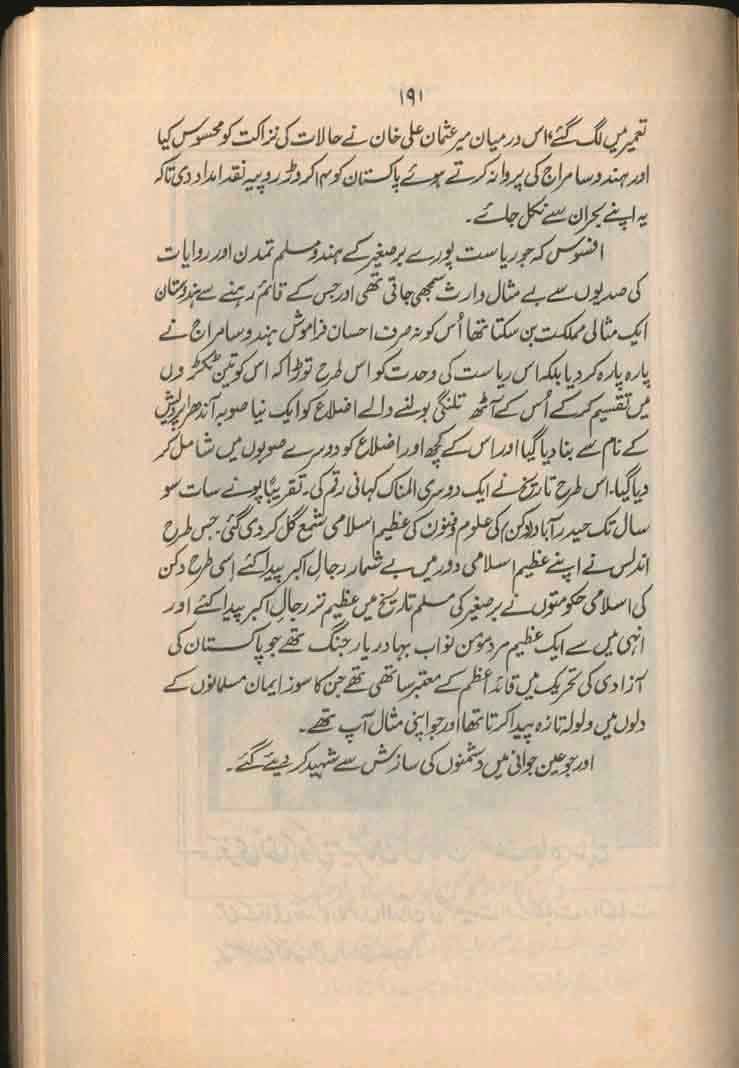 ۱۹۱
تعمیر میں لگ گئے؛ اس درمیان میر عثمان علی خان نے حالات کی نزاکت کو محسوس کیا
اور ہندو سامراج کی پروا نہ کرتے ہوئے پاکستان کو ۴۰ کروڑ روپیہ نقد امداد دی تاکہ
یہ اپنے بحران سے نکل جائے۔
افسوس کہ جو ریاست پورے برصغیر کے ہندو مسلم تمدن اور روایات
کی صدیوں سے بے مثال وارث سمجھی جاتی تھی اور جس کے قائم رہنے سے ہندوستان
ایک مثالی مملکت بن سکتا تھا اُس کو نہ صرف احسان فراموش ہندو سامراج نے
پارہ پارہ کر دیا بلکہ اس ریاست کی وحدت کو اس طرح توڑا کہ اس کو تین ٹکٹروں
میں تقسیم کر کے اُس کے آٹھ تلنگی بولنے والے اضلاع کو ایک نیا صوبہ آندھرا پردیش
کے نام سے بنا دیا گیا اور اس کے کچھ اور اضلاع کو دوسرے صوبوں میں شامل کر
دیا گیا۔ اس طرح تاریخ نے ایک دوسری المناک کہانی رقم کی۔ تقریباً پونے سات سو
سال تک حیدرآباد (دکن) کی علوم و فنون کی عظیم اسلامی شمع گل کر دی گئی۔ جس طرح
اندلس نے اپنے عظیم اسلامی دور میں بے شمار رجالِ اکبر پیدا کئے اِسی طرح دکن
کی اسلامی حکومتوں نے برصغیر کی مسلم تاریخ میں عظیم تر رجالِ اکبر پیدا کئے اور
انہی میں سے ایک عظیم مردِ مومن نواب بہادر یار جنگ تھے جو پاکستان کی
آزادی کی تحریک میں قائد اعظم کے معتبر ساتھی تھے جن کا سوز ایمان مسلمانوں کے
دلوں میں ولولہ تازہ پیدا کرتا تھا اور جو اپنی مثال آپ تھے۔
اور جو عین جوانی میں دشمنوں کی سازش سے شہید کر دیئے گئے۔